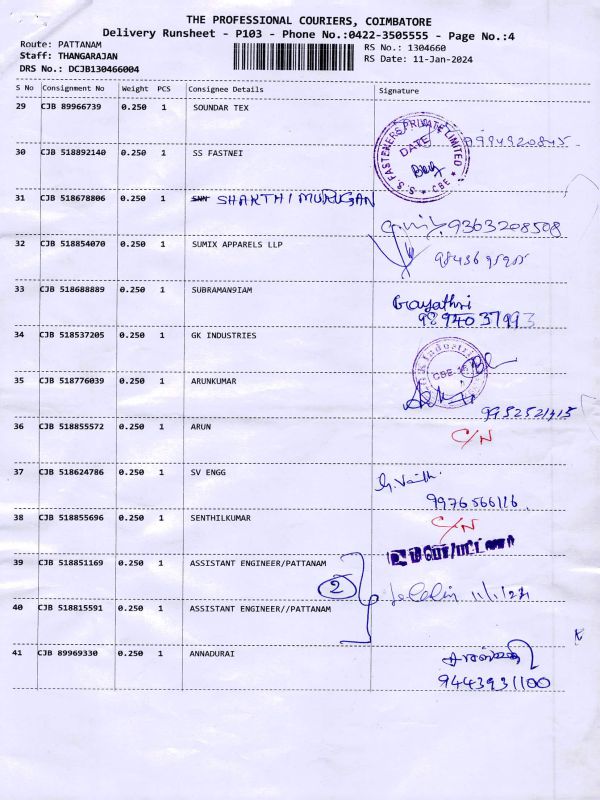 THE PROFESSIONAL COURIERS, COIMBATORE
Delivery Runsheet - P103 - Phone No.:0422-3505555 - Page No.:4
Route: PATTANAM RS No.: 1304660
Staff: THANGARAJAN RS Date: 11-Jan-2024
DRS No.: DCJB130466004
S No Consignment No Weight PCS Consignee Details Signature
29 CJB 89966739 0.250 1 SOUNDAR TEX
30 CJB 518892140 0.250 1 SS FASTNEI
S.S. FASTENERS PRIVATE LIMITED
DATE
CBE
31 CJB 518678806 0.250 1 SHAKTHI MURUGAN
9363208508
32 CJB 518854070 0.250 1 SUMIX APPARELS LLP
33 CJB 518688889 0.250 1 SUBRAMAN9IAM
Gayathri
9894037993
34 CJB 518537205 0.250 1 GK INDUSTRIES
35 CJB 518776039 0.250 1 ARUNKUMAR
36 CJB 518855572 0.250 1 ARUN
C/N
37 CJB 518624786 0.250 1 SV ENGG
9976566116
38 CJB 518855696 0.250 1 SENTHILKUMAR
C/N
39 CJB 518851169 0.250 1 ASSISTANT ENGINEER/PATTANAM
2
40 CJB 518815591 0.250 1 ASSISTANT ENGINEER//PATTANAM
41 CJB 89969330 0.250 1 ANNADURAI
9443931100